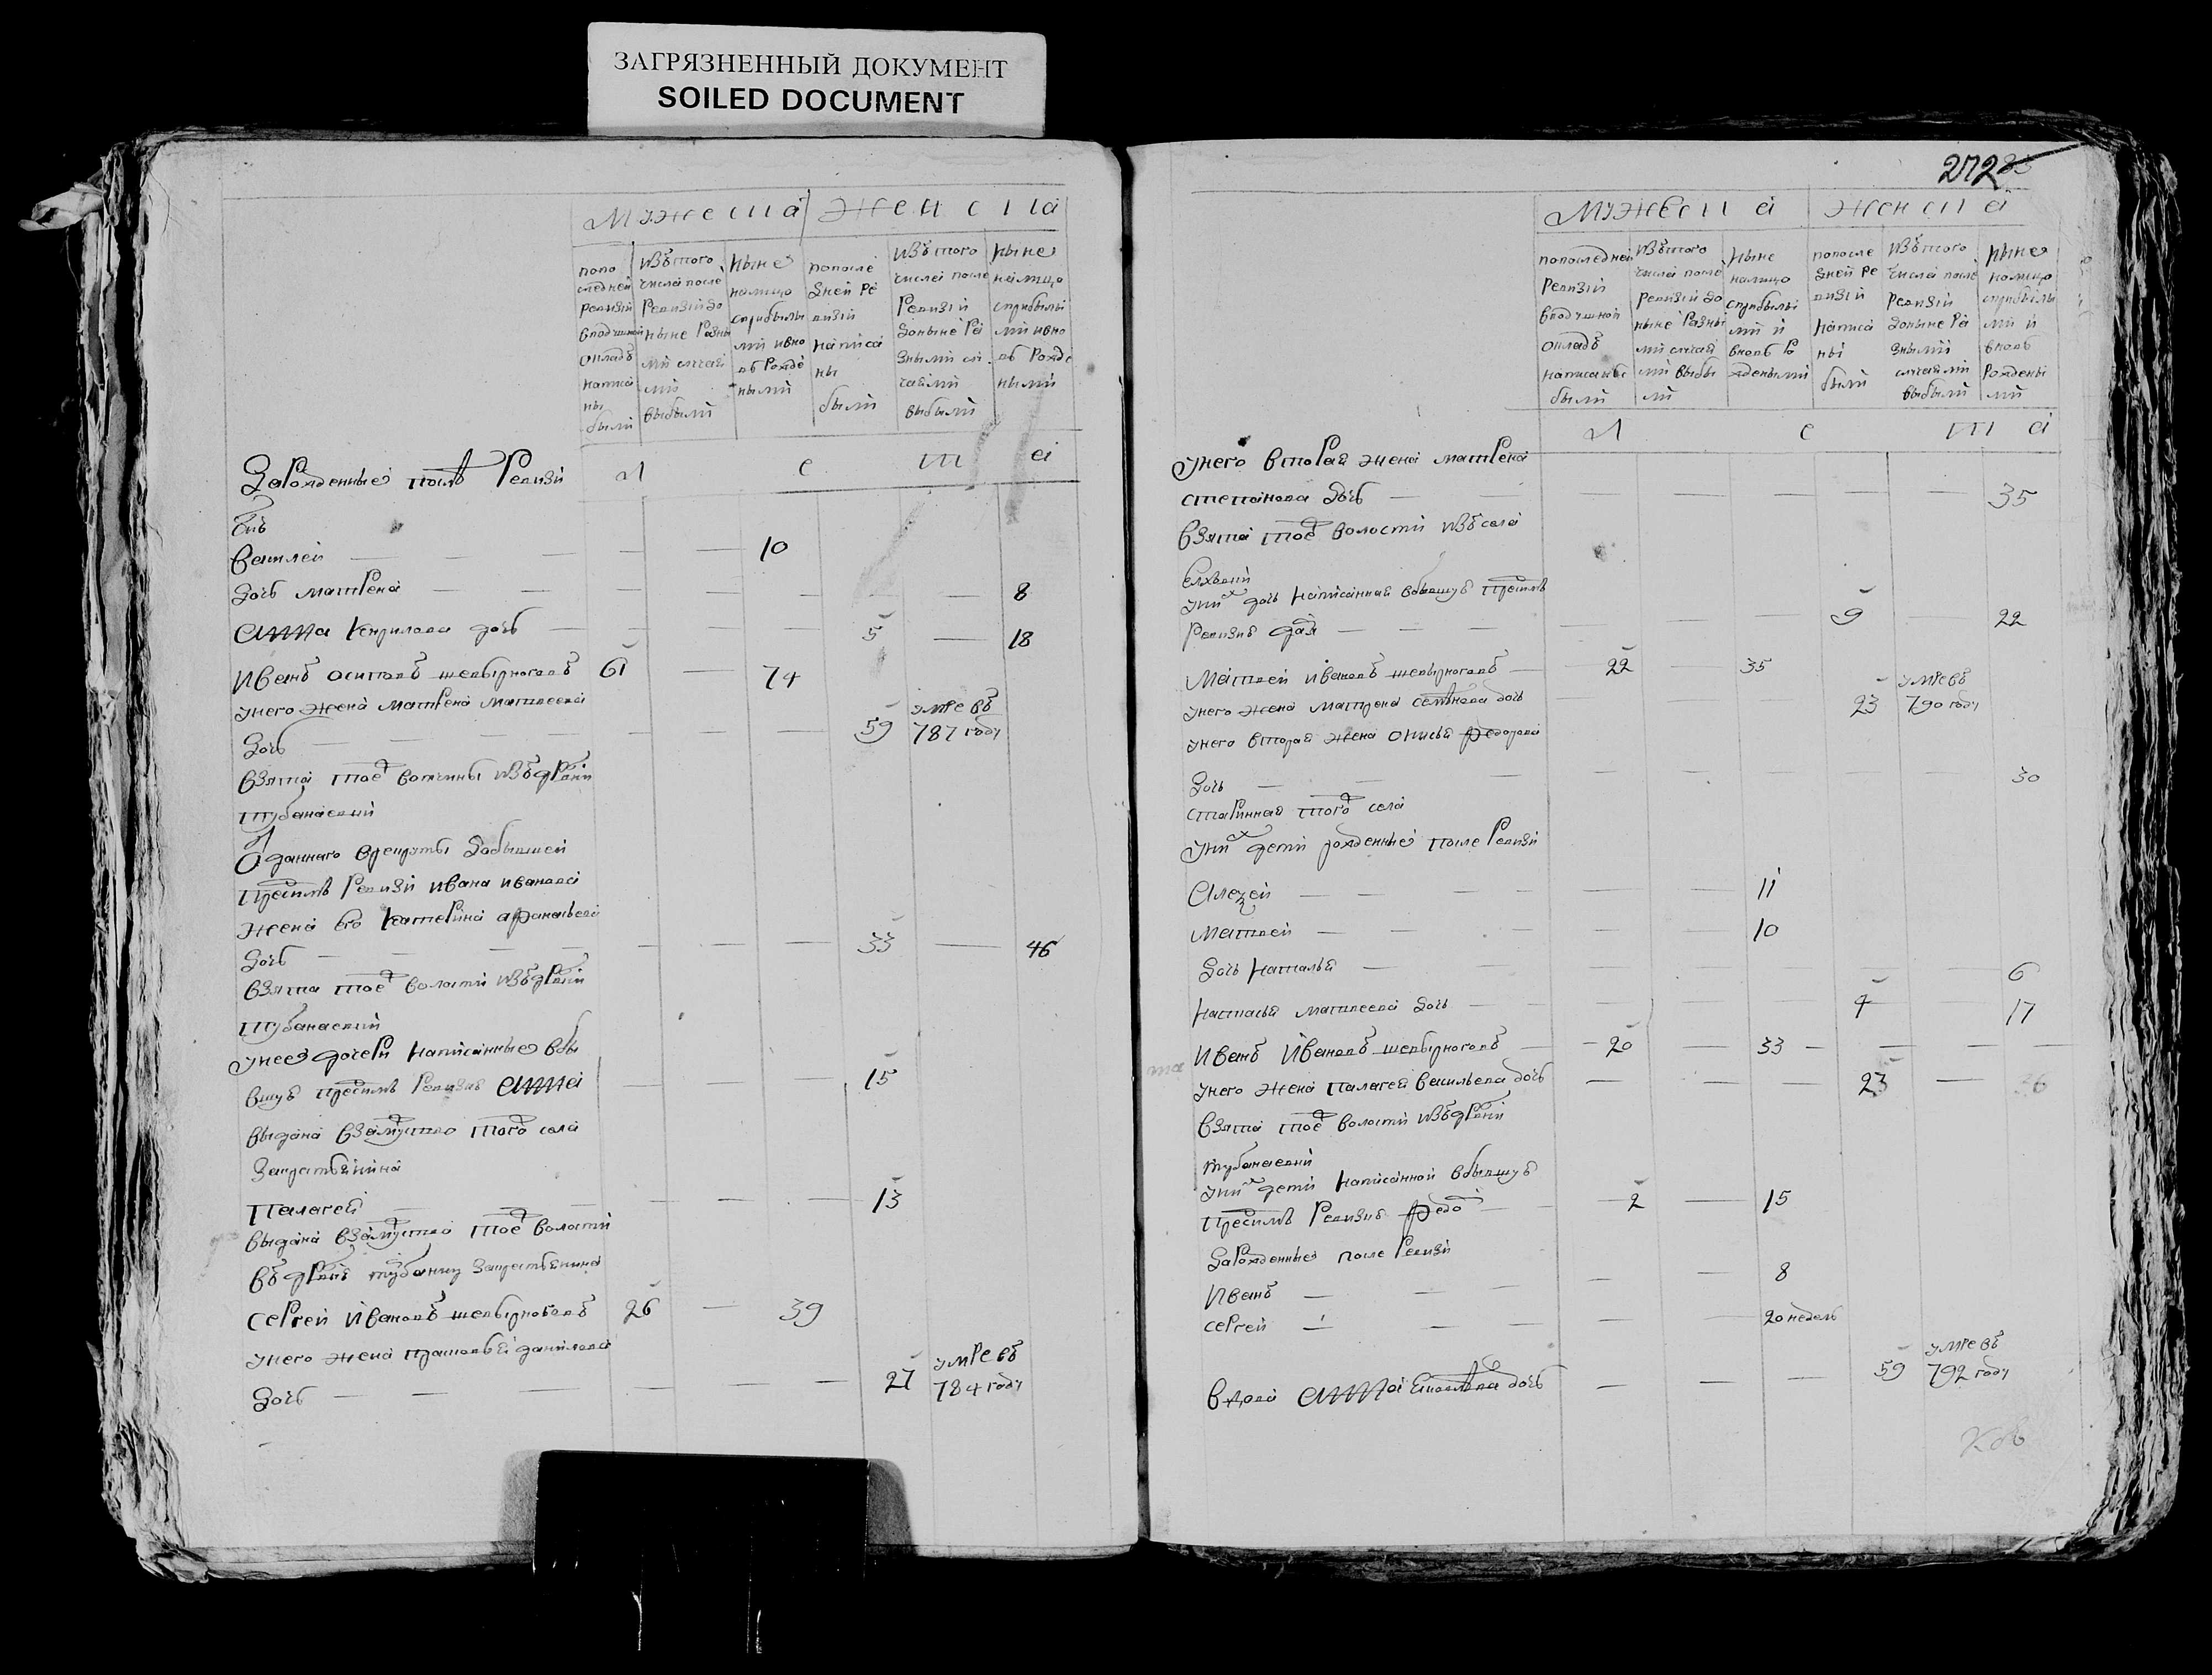 ЗАГРЯЗНЕННЫЙ ДОКУМЕНТ
SOILED DOCUMENT
Мужеска Женска
попо
следней
ревизии
вподушной
окладъ
написа
ны
были
изътого
числа после
Ревизии до
ныне Разны
ми случаи
ми
выбыли
ныне
налицо
сприбылы
ми ивно
вь Рожде
ными
попосле
дней Ре
визии
написа
ны
были
изътого
числа после
Ревизии
доныне Ра
зными слу
чаями
выбыли
ныне
налицо
сприбылы
ми ивно
вь Рожде
ными
Л е т а
Зарожденные послѣ Ревизи
Снъ
василей — — — 10
дочь матрена — — — 8
Анна Кирилова дочь — — — 5 — 18
Иванъ осиповъ шевырноговъ 61 — 74
унего жена матрена матвеева
дочь — — — 59 умре въ 787 году
взята тоеж вотчины издѣревни
тубанаевки
Отданнаго врекруты добывшей
пресимъ Ревизи ивана иванова
жена его катерина афанасьева
дочь — — — 33 — 46
взята тоеж волости издѣревни
тубанаевки
унеез дочери написанные вбы
вшую пресимъ Ревизию Анна — — — 15
выдана взамужство тогож села
закрестьянина
Палагея — — — 13
выдана взамужство тоеж волости
въдѣревню тубанку закрестьянина
Сергей Ивановъ шевырноговъ 26 — 39
унего жена прасковья данилова
дочь — — — 27 умре въ 784 году
272
Мужеска Женска
попоследней
Ревизии
вподушной
окладъ
написаны
были
изътого
числа после
ревизии до
ныне Разны
ми случаи
ми выбы
ли
ныне
налицо
сприбылы
ми и
вновь Ро
жденными
попосле
дней Ре
визии
написа
ны
были
изътого
числа после
ревизии
доныне Ра
зными
случаями
выбыли
ныне
налицо
сприбылы
ми и
вновь
Рождены
ми
Л е т а
унего вторая жена матрена
степанова дочь — — — 35
взята тоеж волости изъсела
Елховки
уних дочь написанная вбывшую пресимъ
Ревизию — — — 9 — 22
Матвей Ивановъ шевырноговъ — 22 — 35
унего жена матрена семенова дочь — — — 23 умре въ 790 году
унего вторая жена онисья федорова
дочь — — — 30
старинная тогож села
уних дети рожденные после Ревизи
Алексей — — — 11
Матвей — — — 10
дочь Наталья — — — 6
настасья матвеева дочь — — — 4 — 17
Иванъ Ивановъ шевырноговъ — 20 — 33 — — —
унего жена палагея васильева дочь — — — 23 — 36
взята тоеж волости издѣревни
тубанаевки
уних дети написанной вбывшую
пресимъ Ревизию федо — 2 — 15
Зарожденные после Ревизи
Иванъ — — — 8
Сергей — — — 20 недель
вдова Анна дочь — — — 59 умре въ 792 году